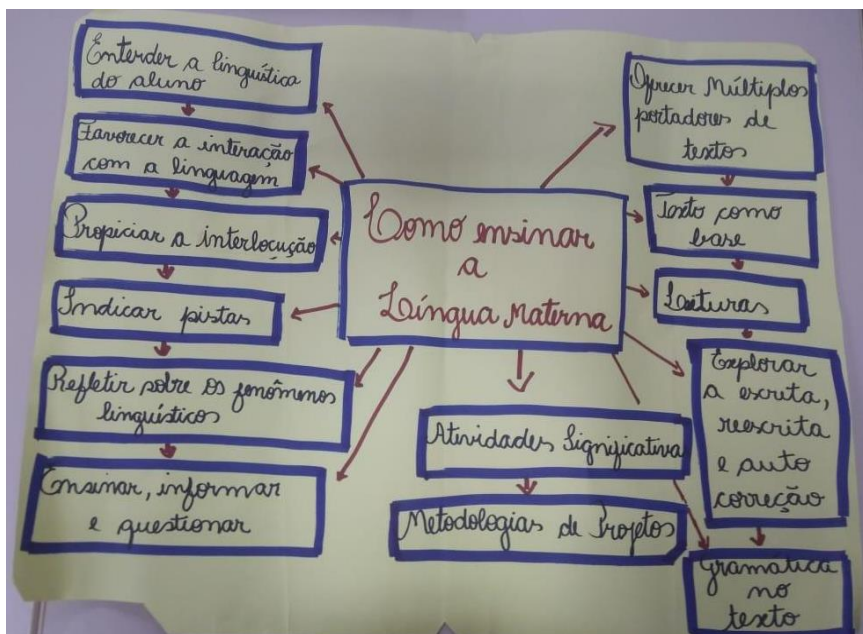 Entender a linguística
do aluno
Favorecer a interação
com a linguagem
Propiciar a interlocução
Indicar pistas
Refletir sobre os fenômenos
linguísticos
Ensinar, informar
e questionar
Como ensinar
a
Língua Materna
Atividades Significativa
Metodologias de Projetos
Oferecer Múltiplos
portadores de
textos
Texto como
base
Leituras
Explorar
a escrita,
reescrita
e auto
correção
Gramática
no
texto